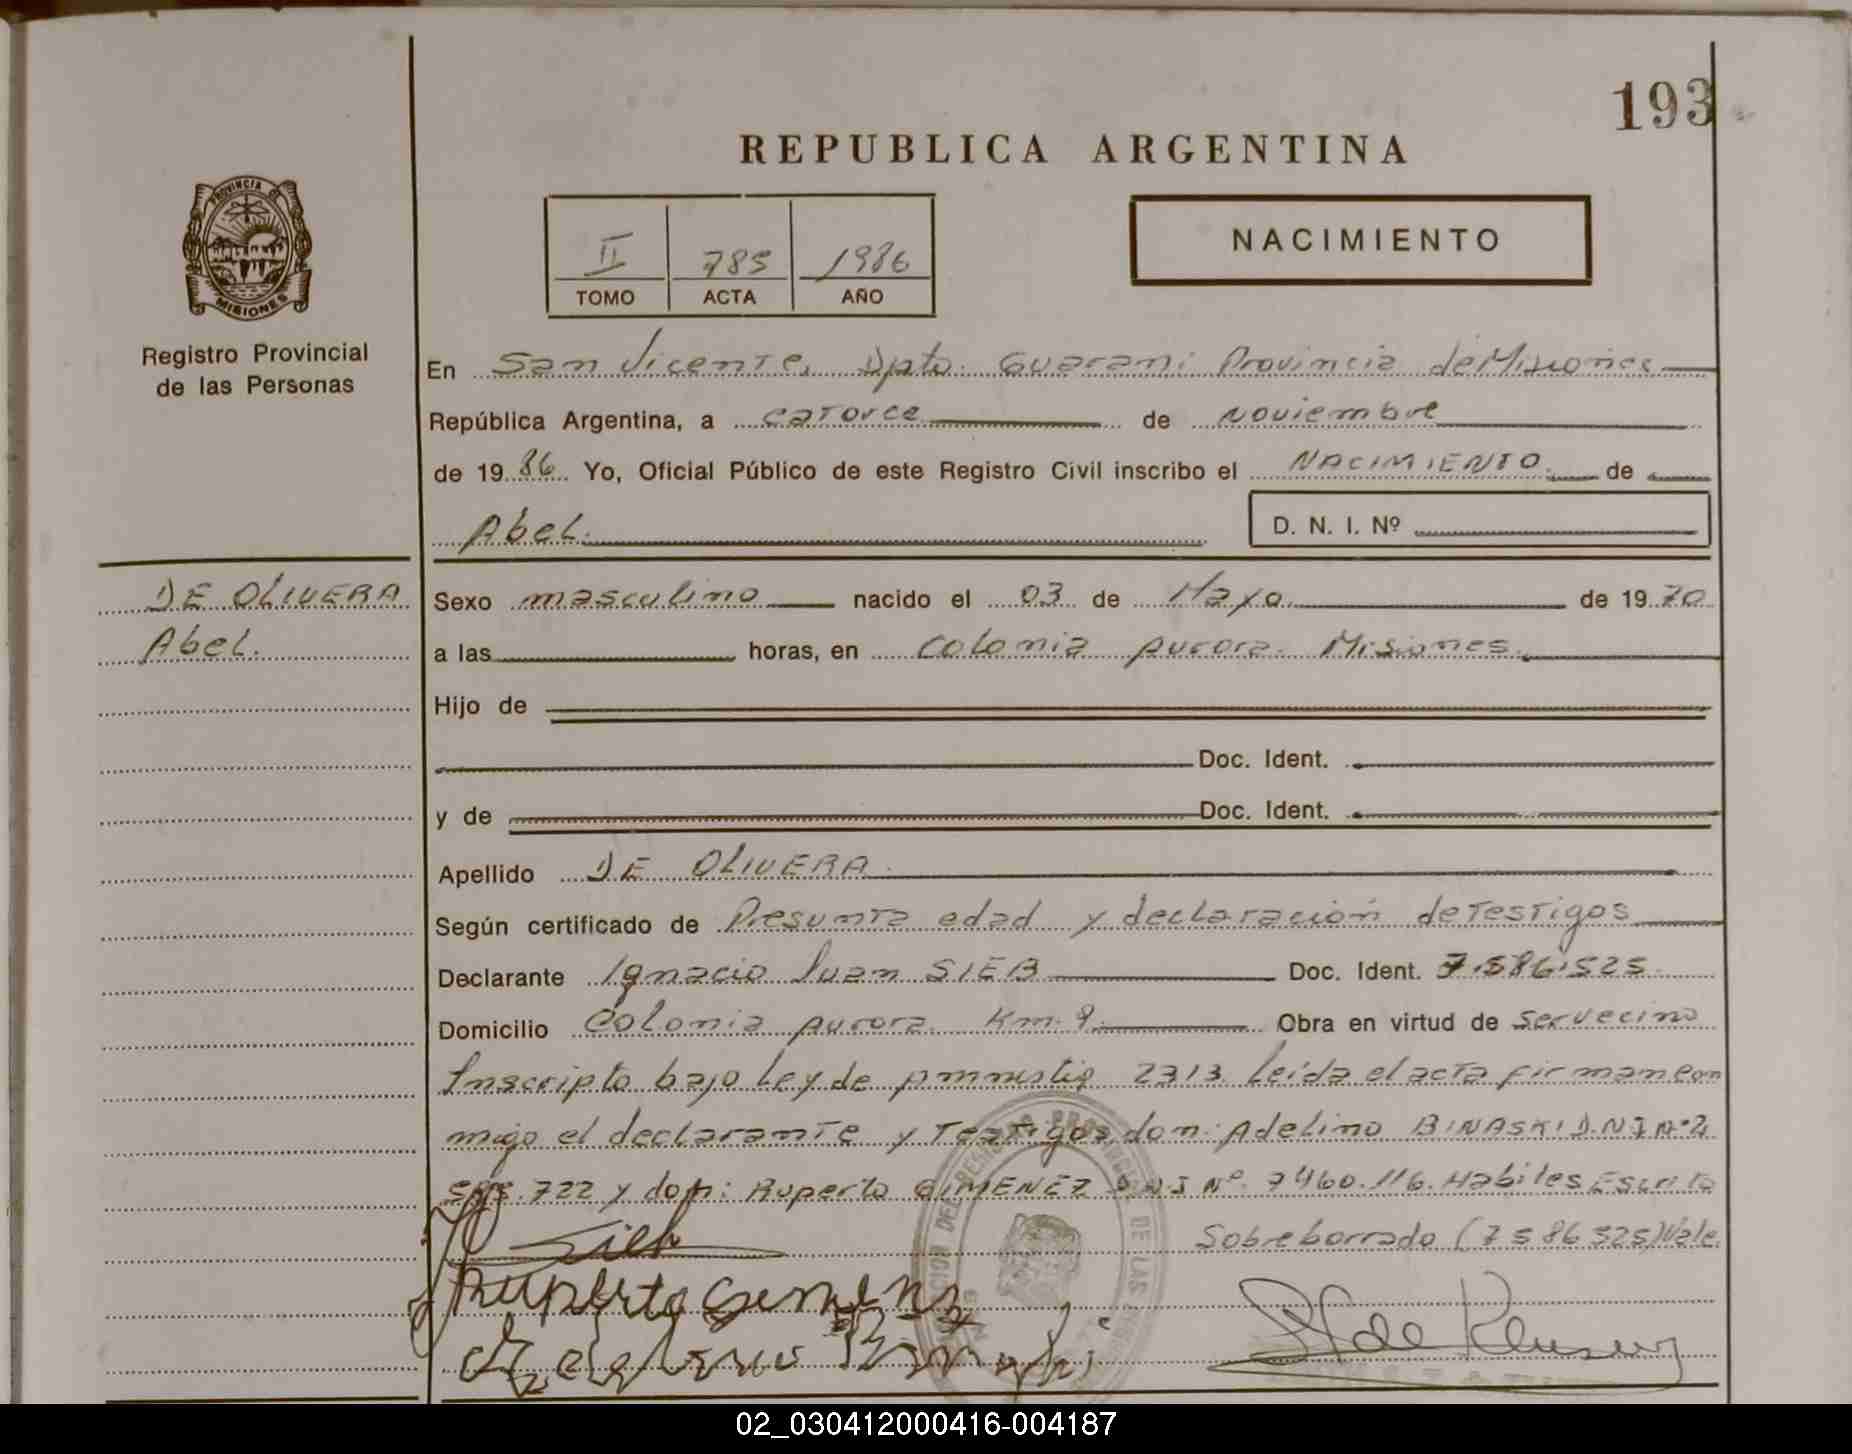 193
REPUBLICA ARGENTINA
NACIMIENTO
II 785 1986
TOMO ACTA AÑO
PROVINCIA
MISIONES
Registro Provincial
de las Personas
En San Vicente, Dpto. Guarani Provincia de Misiones
República Argentina, a catorce de noviembre
de 1986 Yo, Oficial Público de este Registro Civil inscribo el NACIMIENTO de
Abel.
D. N. I. Nº
DE OLIVERA
Abel.
Sexo masculino nacido el 03 de Mayo de 1970
a las horas, en Colonia Aurora. Misiones.
Hijo de
Doc. Ident.
y de Doc. Ident.
Apellido DE OLIVERA.
Según certificado de Presunta edad y declaración de testigos
Declarante Ignacio Juan SIEB Doc. Ident. 7.586.525
Domicilio Colonia Aurora Km. 9. Obra en virtud de ser vecino
Inscripto bajo Ley de Amnistia 2313. Leída el acta firman con
migo el declarante y Testigos, don: Adelino BINASKI D.N.I Nº
722 y don: Ruperto GIMENEZ D.N.I Nº. 7460.116. Habiles Escrito
Sobreborrado (7586525) Vale.
Sieb
Ruperto Gimenez
02_030412000416-004187